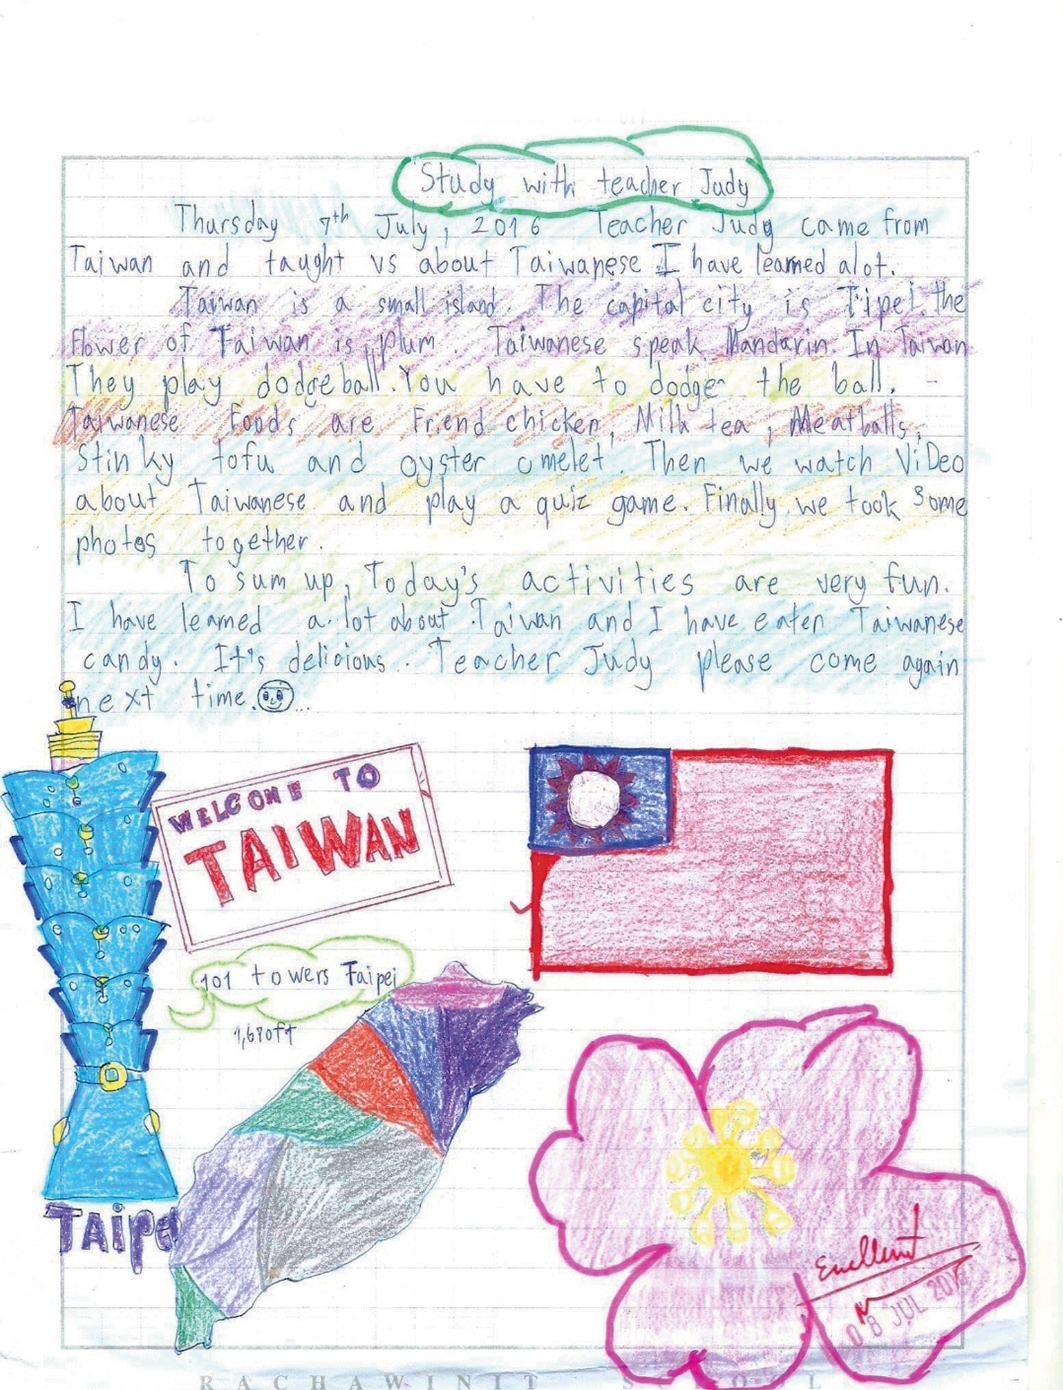 Study with teacher Judy
Thursday 7th July, 2016 Teacher Judy came from
Taiwan and taught vs about Taiwanese I have learned alot.
Taiwan is a small island. The capital city is Tipei the
flower of Taiwan is plum. Taiwanese speak Mandarin. In Taiwan
They play dodgeball. You have to dodge the ball.
Taiwanese foods are Friend chicken, Milk tea, Meatballs,
Stinky tofu and oyster omelet. Then we watch ViDeo
about Taiwanese and play a quiz game. Finally we took some
photos together.
To sum up, Today's activities are very fun.
I have learned a lot about Taiwan and I have eaten Taiwanese
candy. It's delicious.. Teacher Judy please come again
next time. ...
WELCOME TO
TAIWAN
101 towers Taipei
1,670ft
TAipe
Excellent
08 JUL 201
RACHAWINIT SCHOOL